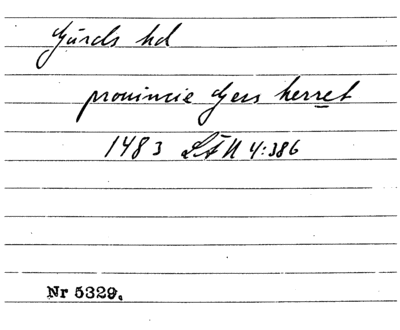 Gärds hd
provincie Gers herret
1483 LÄU 4:386
Nr 5329.